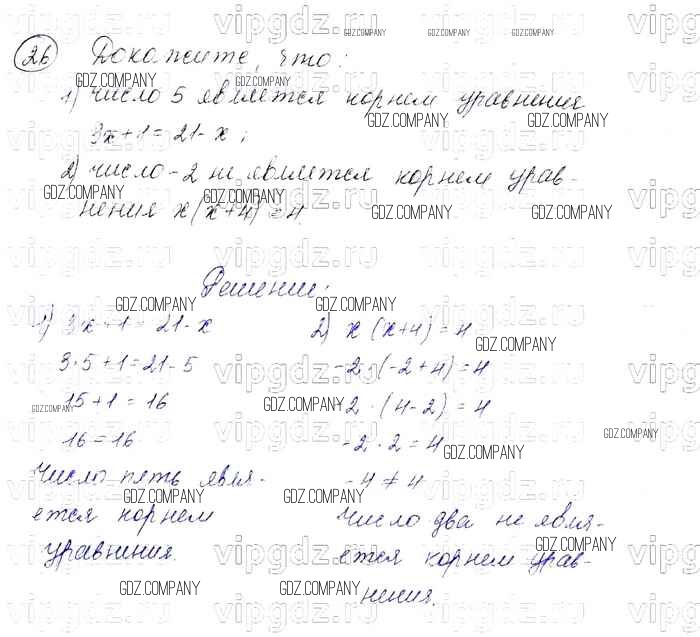 26 Докажите, что:
1) число 5 является корнем уравнения
3x+1=21-x;
2) число -2 не является корнем урав-
нения x(x+4)=4.
Решение:
1) 3x+1=21-x
3·5+1=21-5
15+1=16
16=16
Число пять явля-
ется корнем
уравнения.
2) x(x+4)=4
-2·(-2+4)=4
-2·(4-2)=4
-2·2=4
-4≠4
Число два не явля-
ется корнем урав-
нения.
GDZ.COMPANY
vipgdz.ru